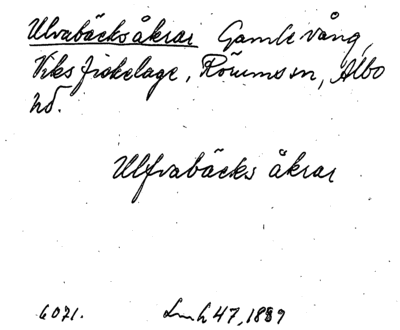 Ulvabäcksåkrar Gamle vång,
Viks fiskelage, Rörums sn, Albo
hd.
Ulfvabäcks åkrar
6071. Lmh 47, 1889